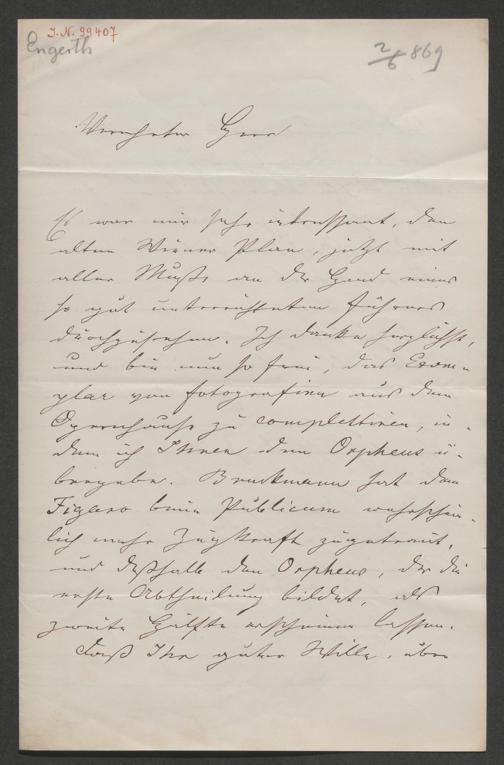 I.N. 99407
Engerth
2/6 869
Verehrter Herr
Es war mir sehr interessant, den
alten Wiener Plan, jetzt mit
aller Muße an der Hand eines
so gut unterrichteten Führers
durchzusehen. Ich danke herzlichst,
und bin nun so frei, das Exem-
plar von Fotografien aus dem
Opernhause zu complettiren, in-
dem ich Ihnen den Orpheus ü-
bergebe. Bruckmann hat dem
Figaro beim Publicum wahrschein-
lich mehr Zugkraft zugetraut,
und deßhalb den Orpheus, der die
erste Abtheilung bildet, als
zweite Hälfte erscheinen lassen.
Daß Ihr guter Wille, über